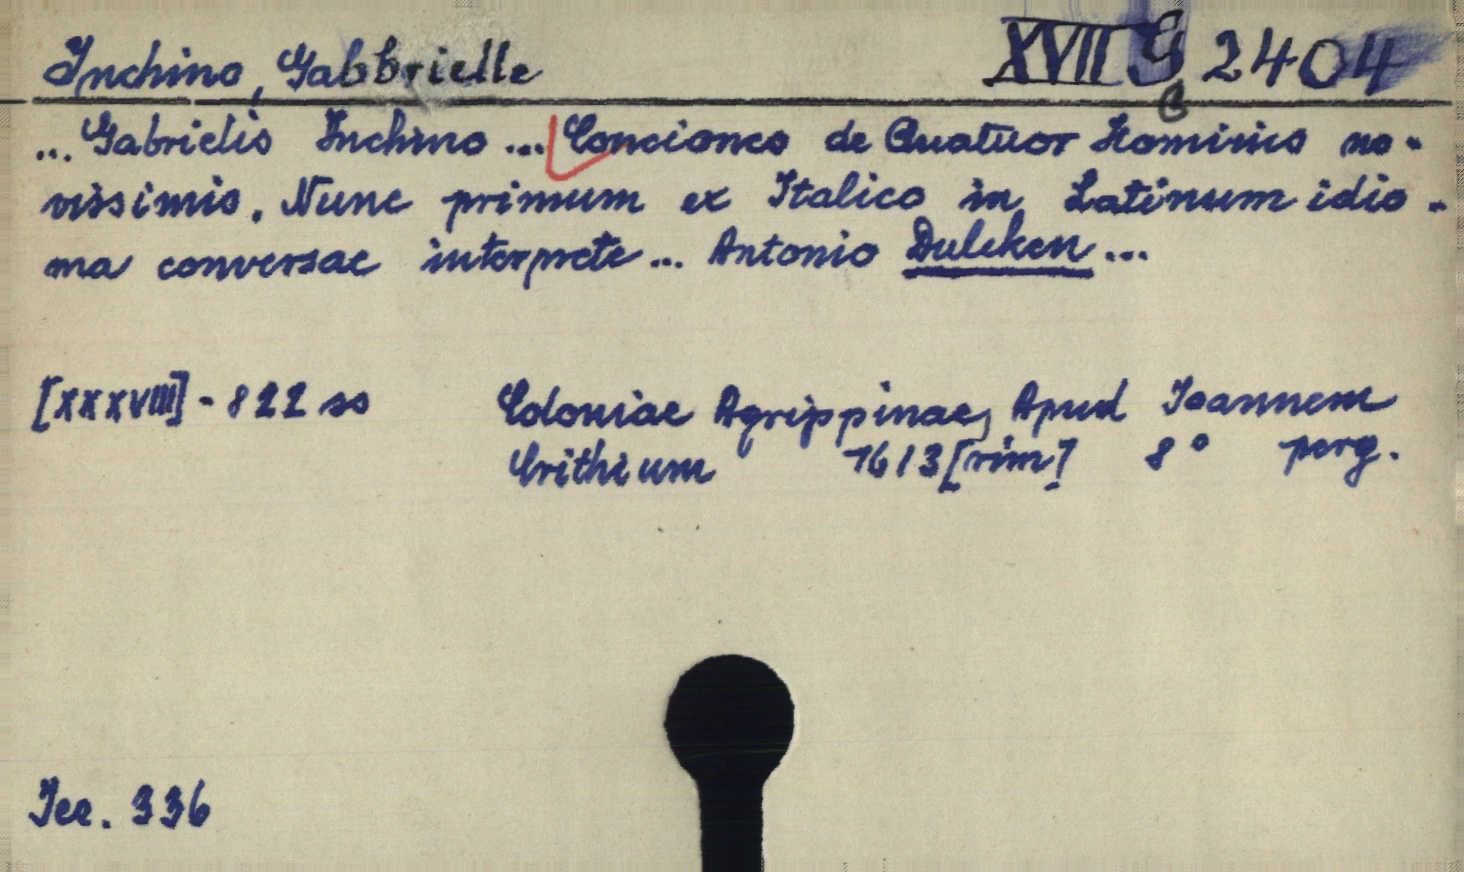 Inchino, Gabbrielle XVII G 2404
... Gabrielis Inchino ... Conciones de Quatuor Hominis no-
vissimis. Nunc primum ex Italico in Latinum idio-
ma conversae interprete ... Antonio Dulcken ...
[XXXVIII] - 822 ss Coloniae Agrippinae, Apud Ioannem
Crithium 1613 [rim] 8° perg.
336